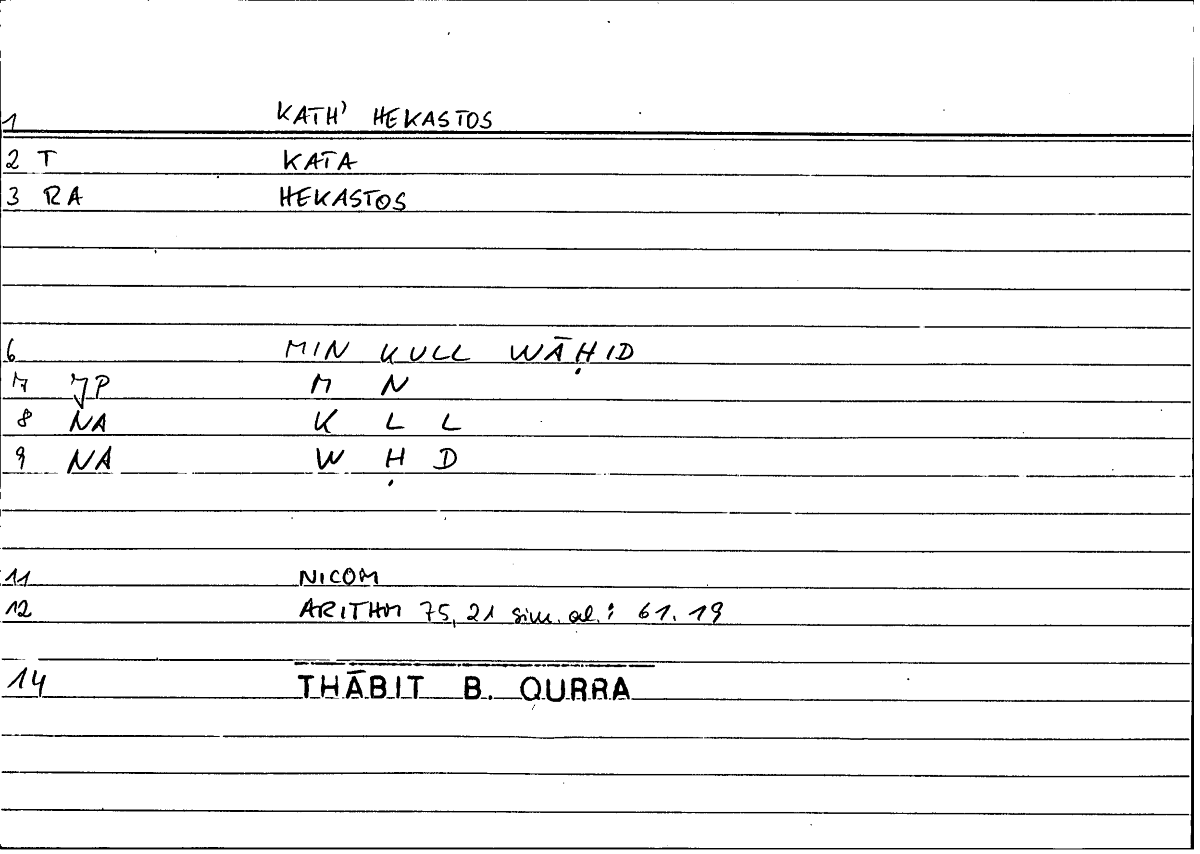 1 KATH' HEKASTOS
2 T KATA
3 RA HEKASTOS
6 MIN KULL WĀḤID
7 JP M N
8 NA K L L
9 NA W Ḥ D
11 NICOM
12 ARITHM 75,21 sim. al.: 61.19
14 THĀBIT B. QURRA